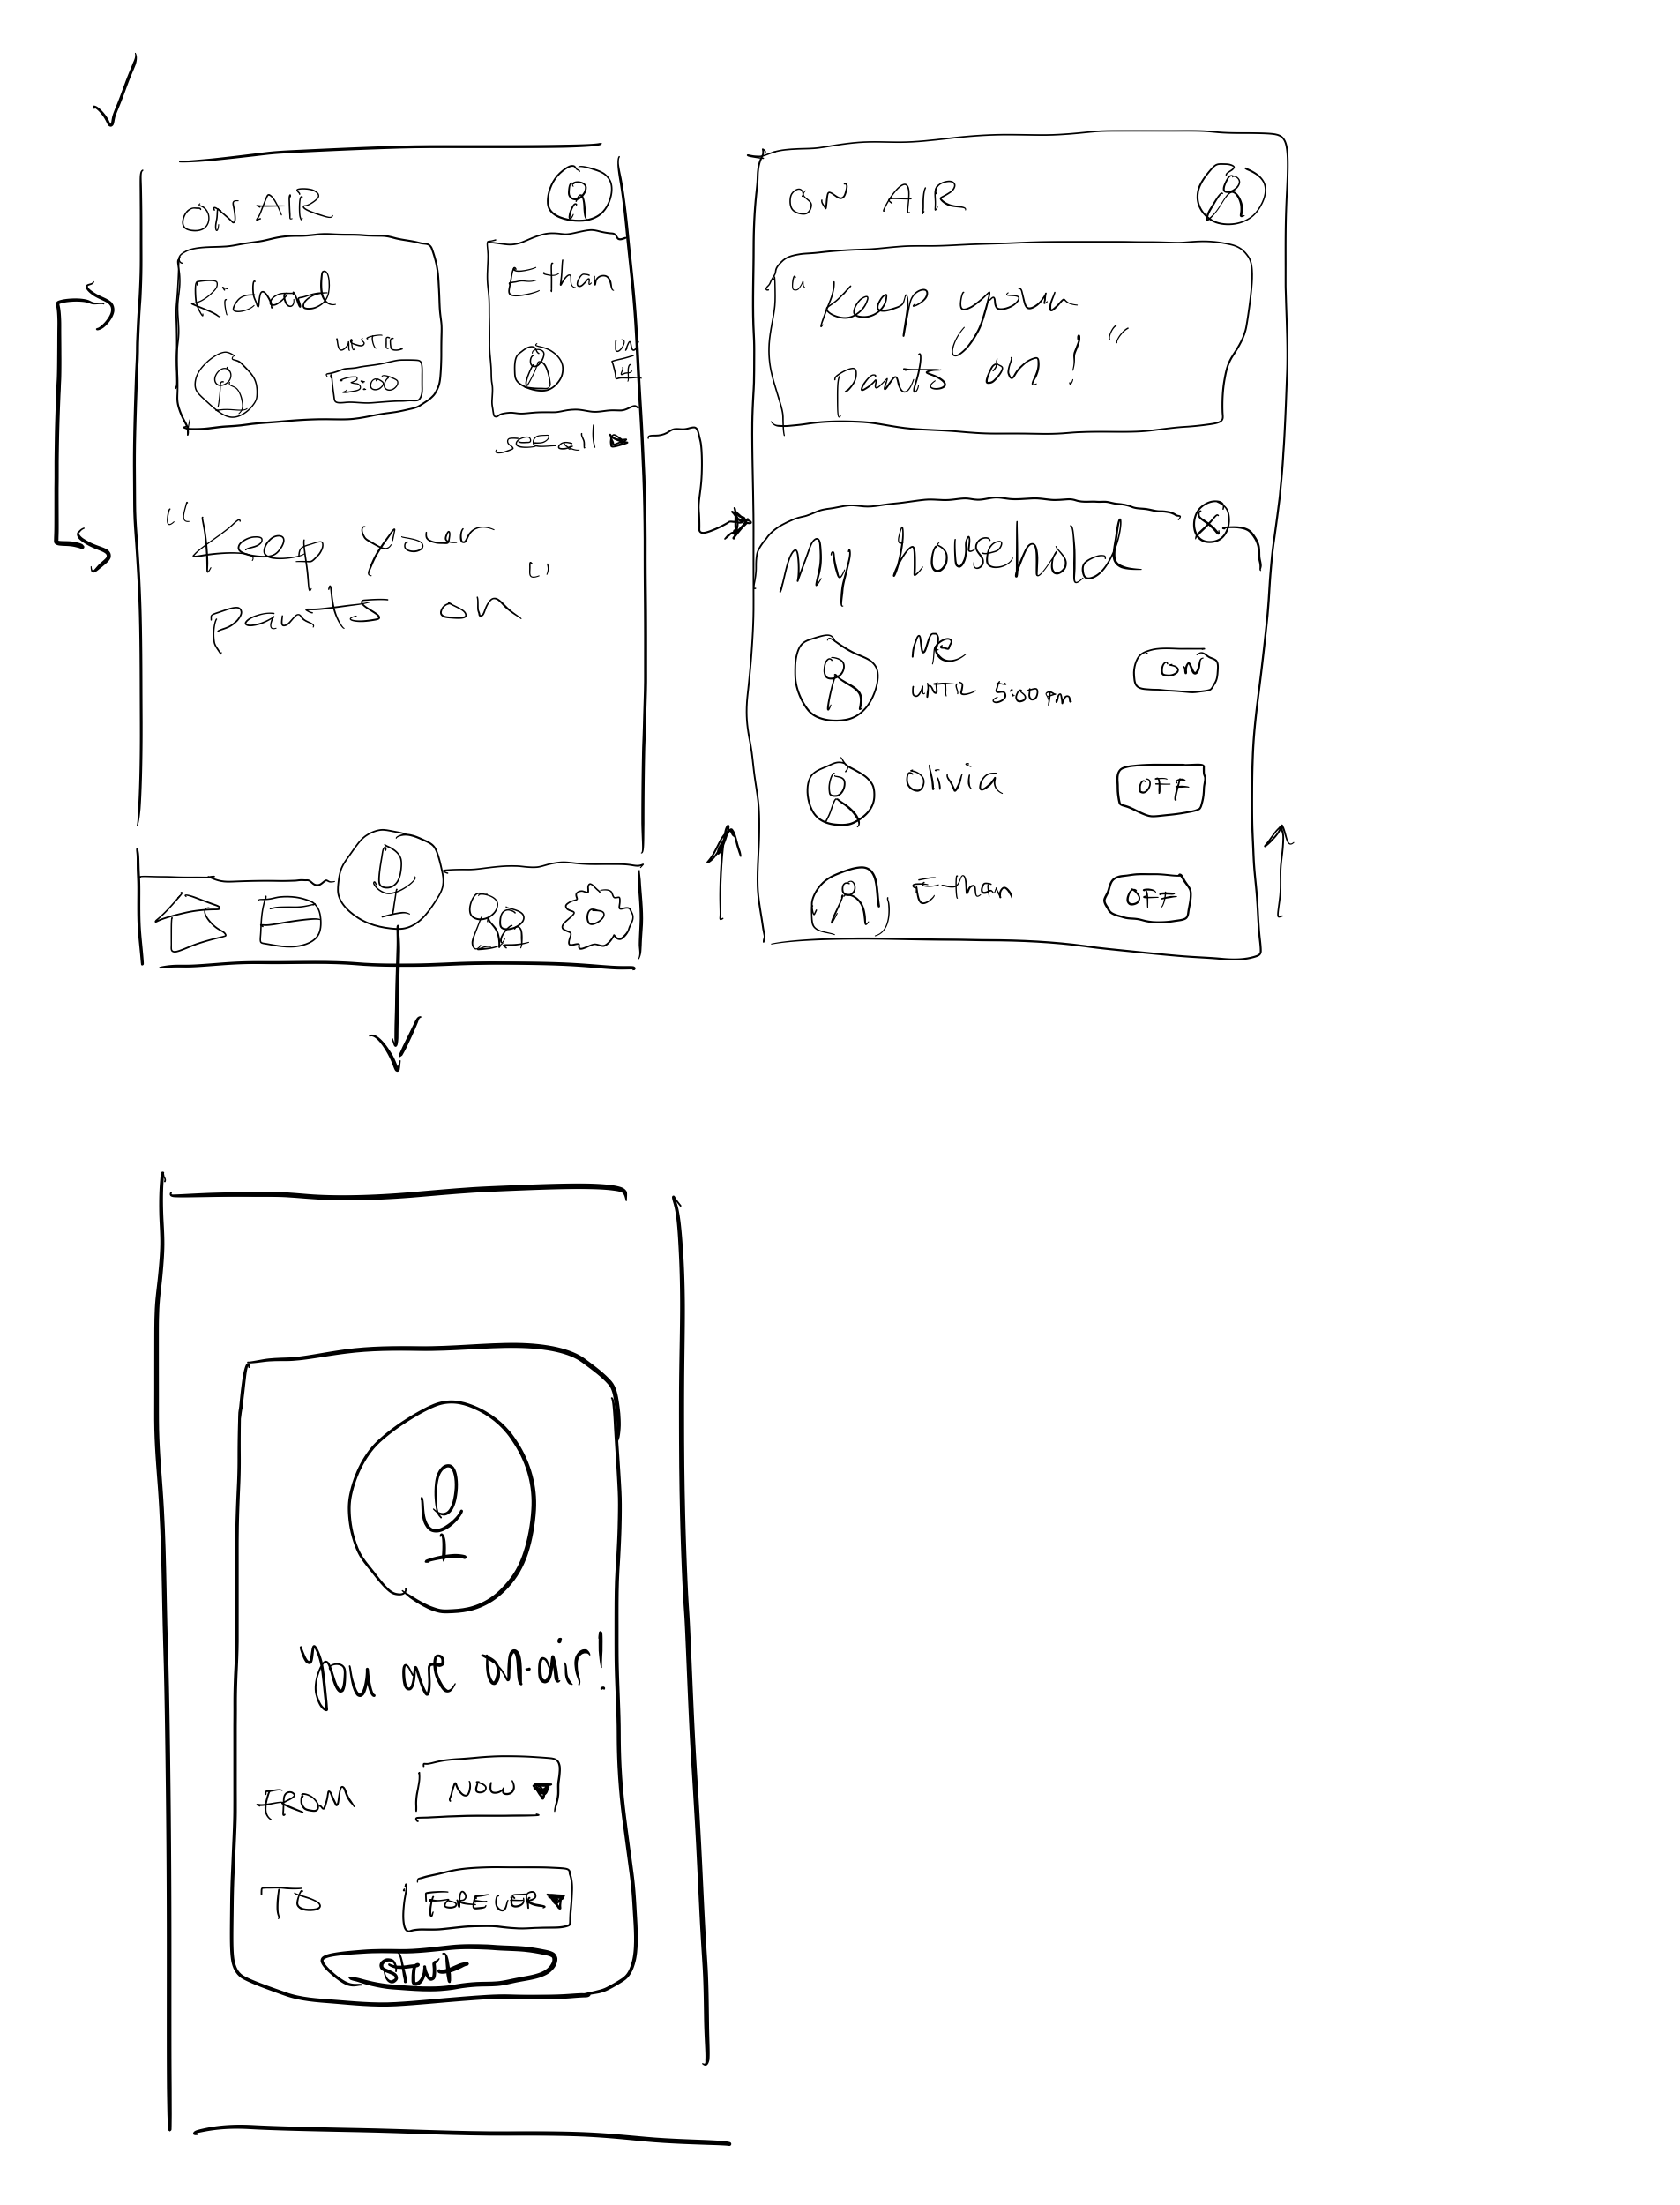 ON AIR
Richard
UNTIL
3:00
Ethan
UN
4
see all
"Keep your
pants on"
ON AIR
"Keep your
pants on!"
My household
Me
UNTIL 5:00 pm
ON
Olivia
OFF
Ethan
OFF
You are on-air!
FROM
NOW
TO
FOREVER
start